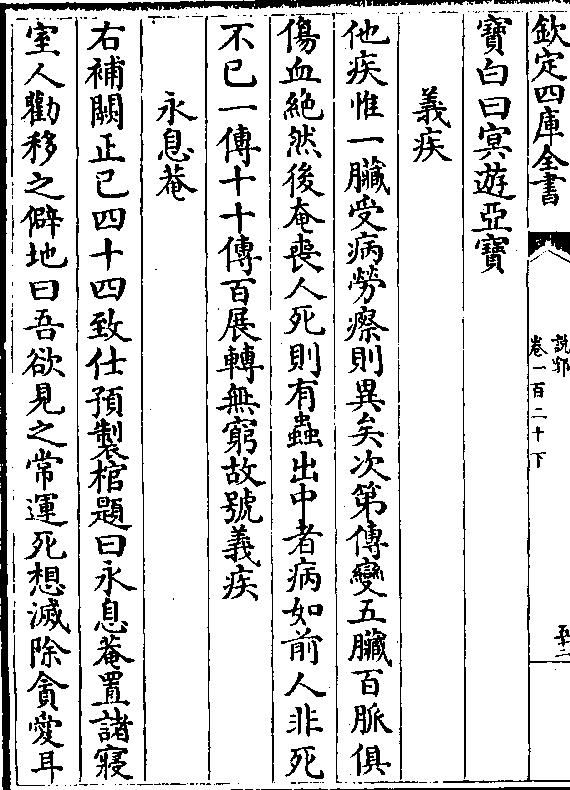 欽定四庫全書
說郛
卷一百二十下
寳白曰㝠遊亞寳
義疾
他疾惟一臟受病勞瘵則異矣次第傳變五臟百脈俱
傷血絶然後奄喪人死則有蟲出中者病如前人非死
不已一傳十十傳百展轉無窮故號義疾
永息菴
右補闕正己四十四致仕預製棺題曰永息菴置諸寢
室人勸移之僻地曰吾欲見之常運死想滅除貪愛耳